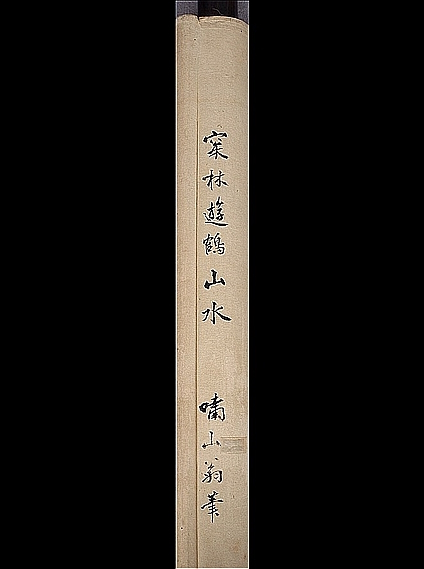 寀林遊鶴山水 嘯山翁筆